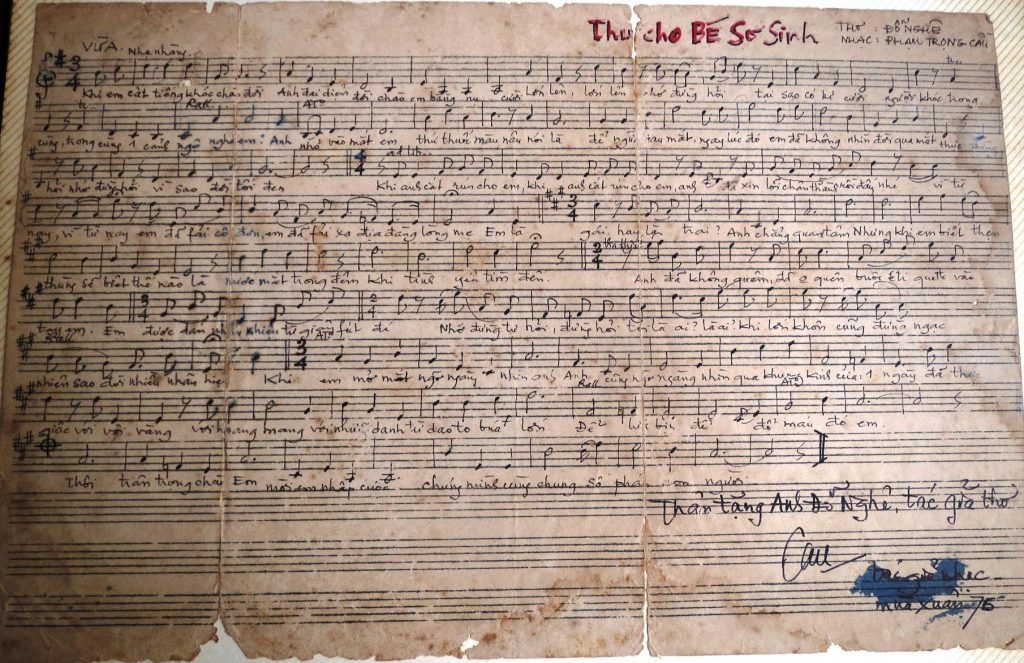 Thư cho BÉ Sơ Sinh
THƠ : ĐỖ NGHÊ
NHẠC : PHẠM TRỌNG CẦU
VỪA. Nhẹ nhàng.
Khi em cất tiếng khóc chào đời Anh đại diện đời chào em bằng nụ cười Lớn lên, lớn lên nhớ đừng hỏi tại sao có kẻ cười người khóc trong
Rall
AT°
cùng, trong cùng 1 cảnh ngộ nghe em! Anh nhỏ vào mắt em thứ thuốc màu nâu nói là để ngừa đau mắt, ngay lúc đó em đã không nhìn đời qua mắt thực
ad lib...
hồi nhớ đừng hỏi vì sao đời tối đen Khi anh cắt rún cho em, khi anh cắt rún cho em, anh đã xin lỗi chân thành rồi đấy nhé vì từ
nay, vì từ nay em đã fải cô đơn, em đã fải xa địa đàng lòng mẹ Em là gái hay là trai? Anh chẳng quan tâm Nhưng khi em biết thẹn
thùng sẽ biết thế nào là nước mắt trong đêm khi tình yêu tìm đến. Anh đã không quên, đã o quên buộc étiquette vào
tay em. Em được dán nhãn, nhiều từ giây fút đó Nhớ đừng tự hỏi, đừng hỏi tôi là ai? là ai? khi lớn khôn cũng đừng ngạc
Rall
AT°
nhiên sao đời nhiều nhãn hiệu Khi em mở mắt ngỡ ngàng nhìn anh Anh cũng ngỡ ngàng nhìn qua khung kính cửa: 1 ngày đã thức
Rall
AT°
giấc với vội vàng với hoang mang với những danh từ dao to búa lớn Để đổ máu đó em.
Thôi trân trọng chào Em mời em nhập cuộc chúng mình cùng chung số phận con người.
Thân tặng Anh Đỗ Nghê, tác giả thơ
Cau
tác giả nhạc
mùa xuân 75